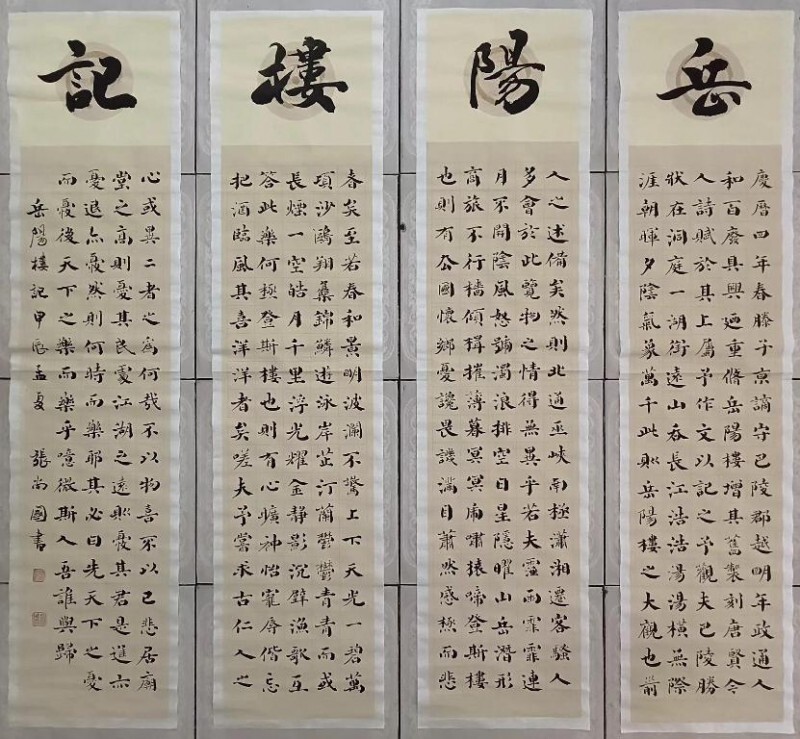 岳陽樓記
慶曆四年春滕子京謫守巴陵郡越明年政通人
和百廢具興廼重脩岳陽樓增其舊製刻唐賢今
人詩賦於其上屬予作文以記之予觀夫巴陵勝
狀在洞庭一湖銜遠山吞長江浩浩湯湯橫無際
涯朝暉夕陰氣象萬千此則岳陽樓之大觀也前
人之述備矣然則北通巫峽南極瀟湘遷客騷人
多會於此覽物之情得無異乎若夫霪雨霏霏連
月不開陰風怒號濁浪排空日星隱曜山岳潛形
商旅不行檣傾楫摧薄暮冥冥虎嘯猿啼登斯樓
也則有去國懷鄉憂讒畏譏滿目蕭然感極而悲
春矣至若春和景明波瀾不驚上下天光一碧萬
頃沙鷗翔集錦鱗遊泳岸芷汀蘭鬱鬱青青而或
長煙一空皓月千里浮光耀金靜影沉璧漁歌互
答此樂何極登斯樓也則有心曠神怡寵辱偕忘
把酒臨風其喜洋洋者矣嗟夫予嘗求古仁人之
心或異二者之為何哉不以物喜不以己悲居廟
堂之高則憂其民處江湖之遠則憂其君是進亦
憂退亦憂然則何時而樂耶其必曰先天下之憂
而憂後天下之樂而樂乎噫微斯人吾誰與歸
岳陽樓記甲辰孟夏 張尚國書